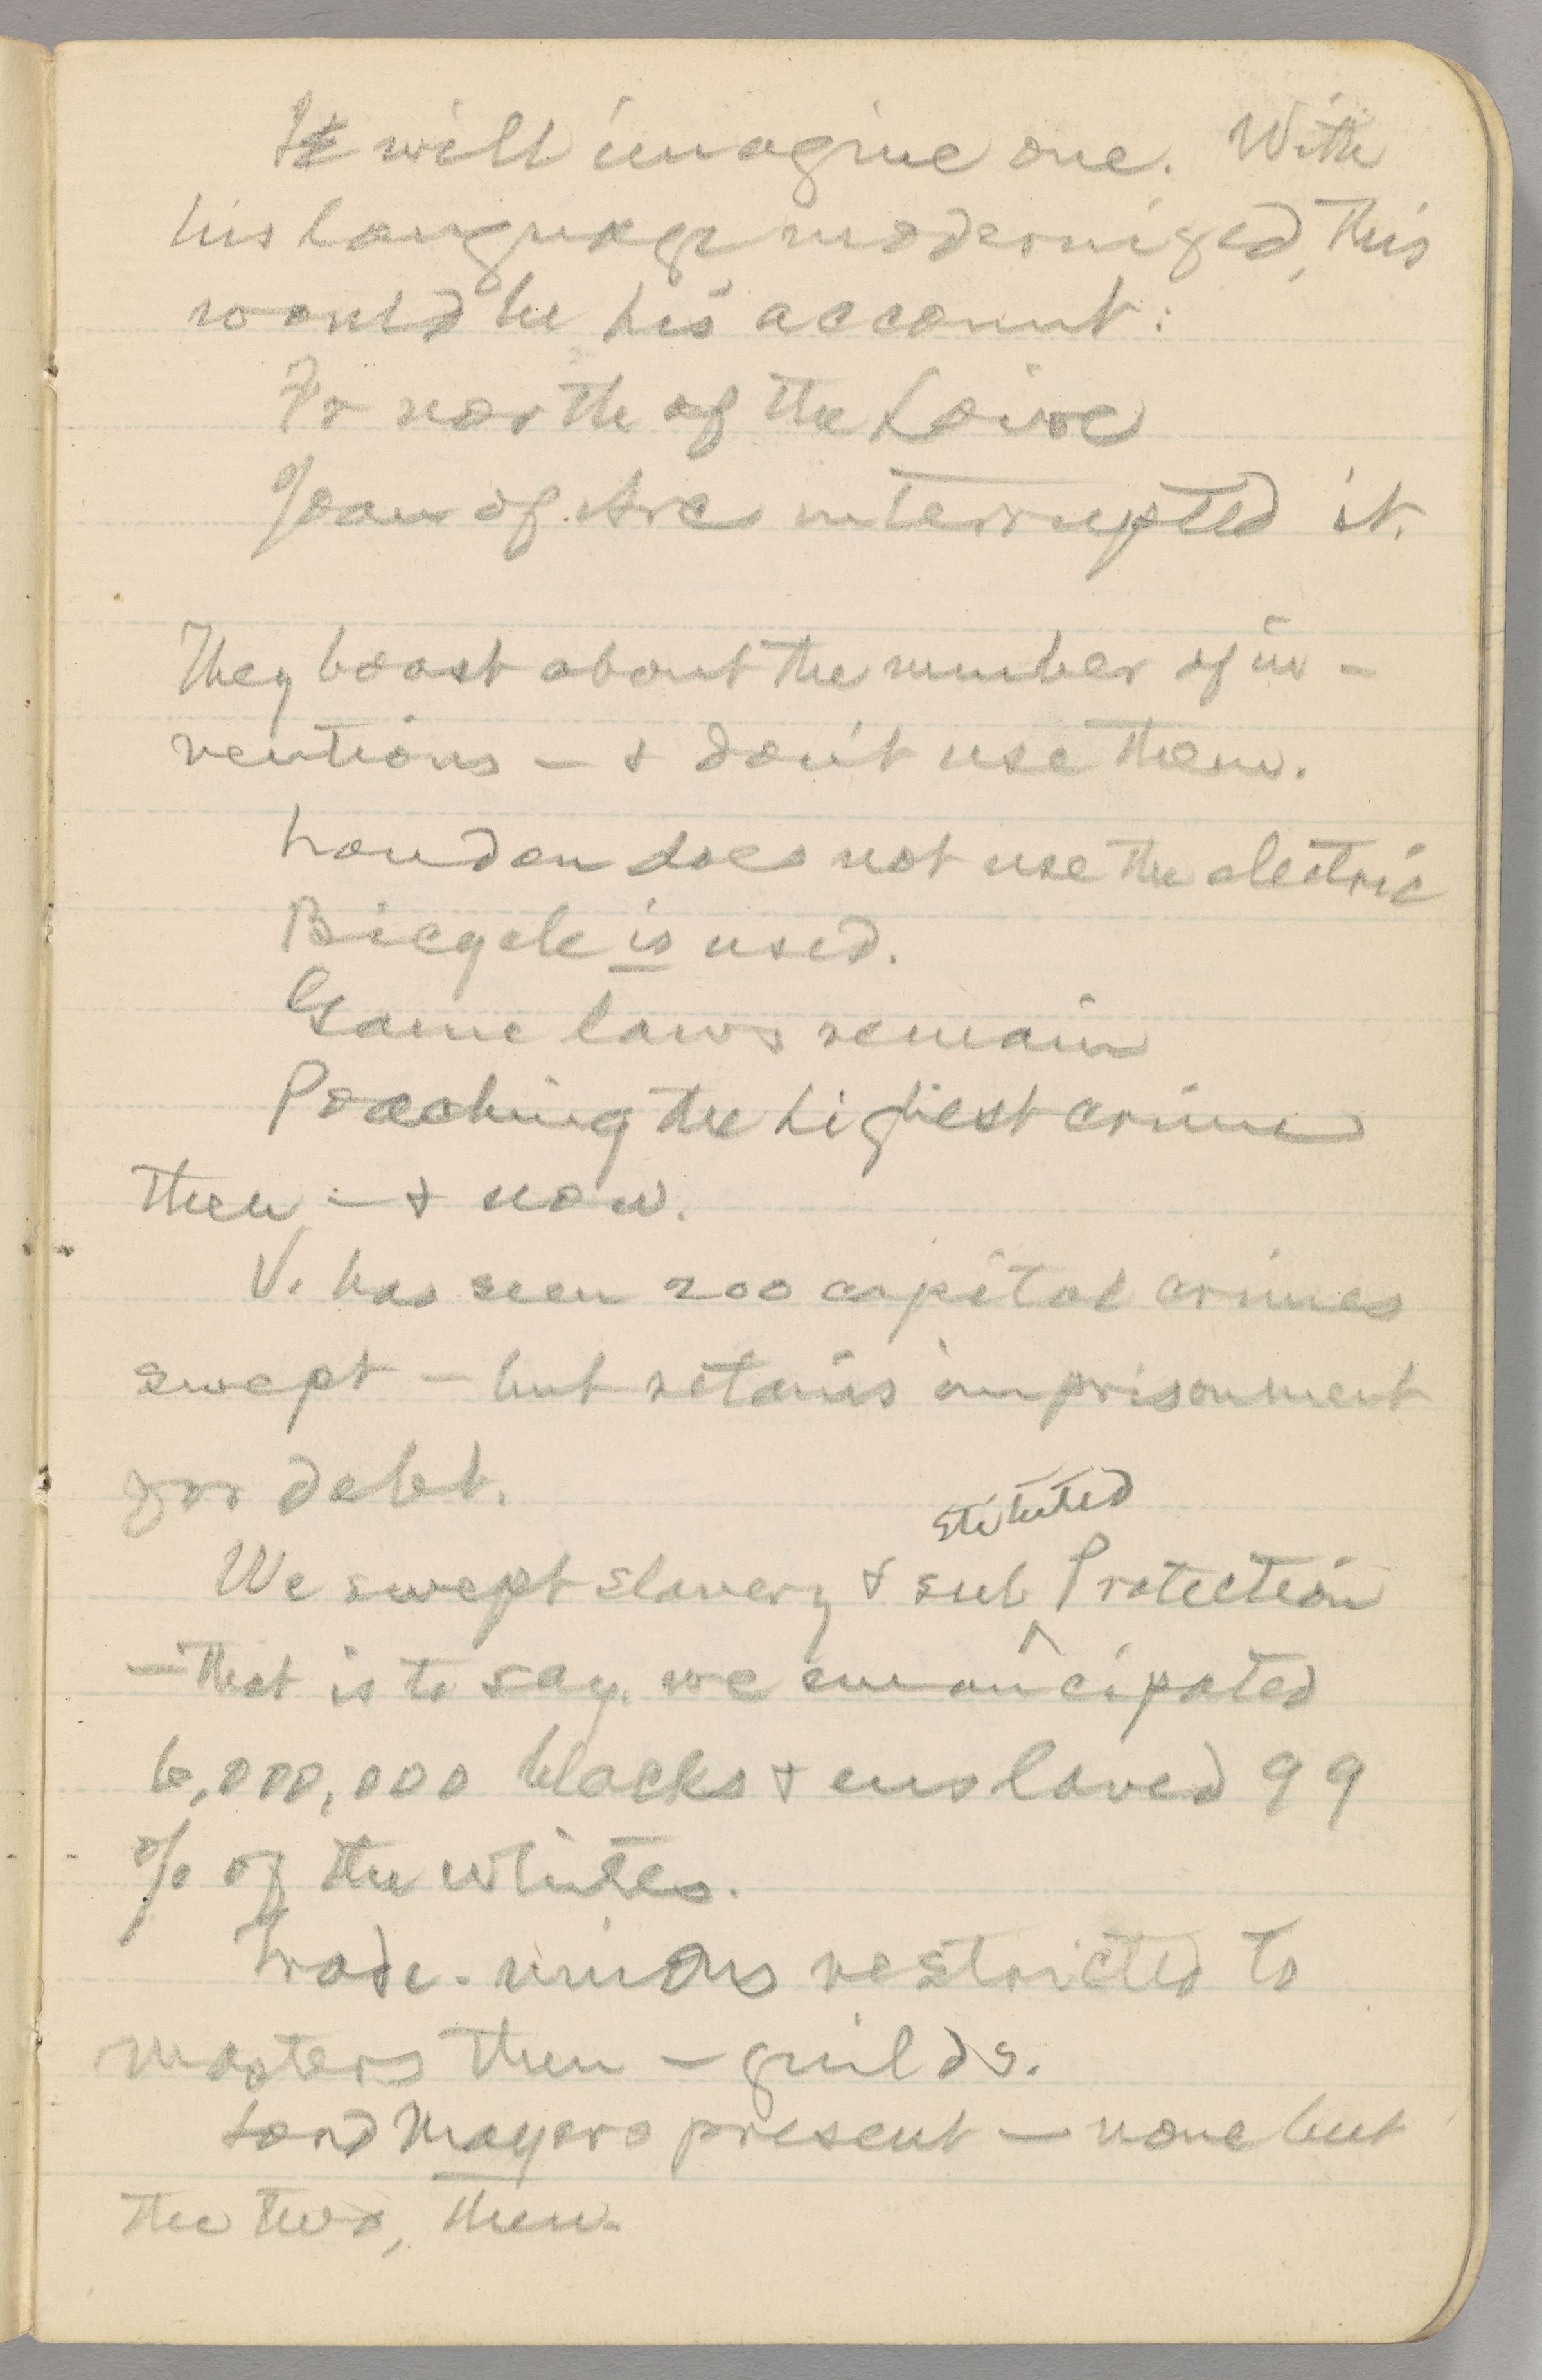 I will imagine one. With
his language modernized, this
would be his account:
Fr north of the Loire
Joan of Arc interrupted it.
They boast about the number of in-
ventions — & don't use them.
London does not use the electric
Bicycle is used.
Game laws remain
Poaching the highest crime
then — & now.
V. has seen 200 capital crimes
swept — but retains imprisonment
for debt.
stituted
We swept slavery & sub Protection
— that is to say, we emancipated
6,000,000 blacks & enslaved 99
% of the whites.
Trade-unions restricted to
masters then — guilds.
Lord Mayors present — none but
the two, then.